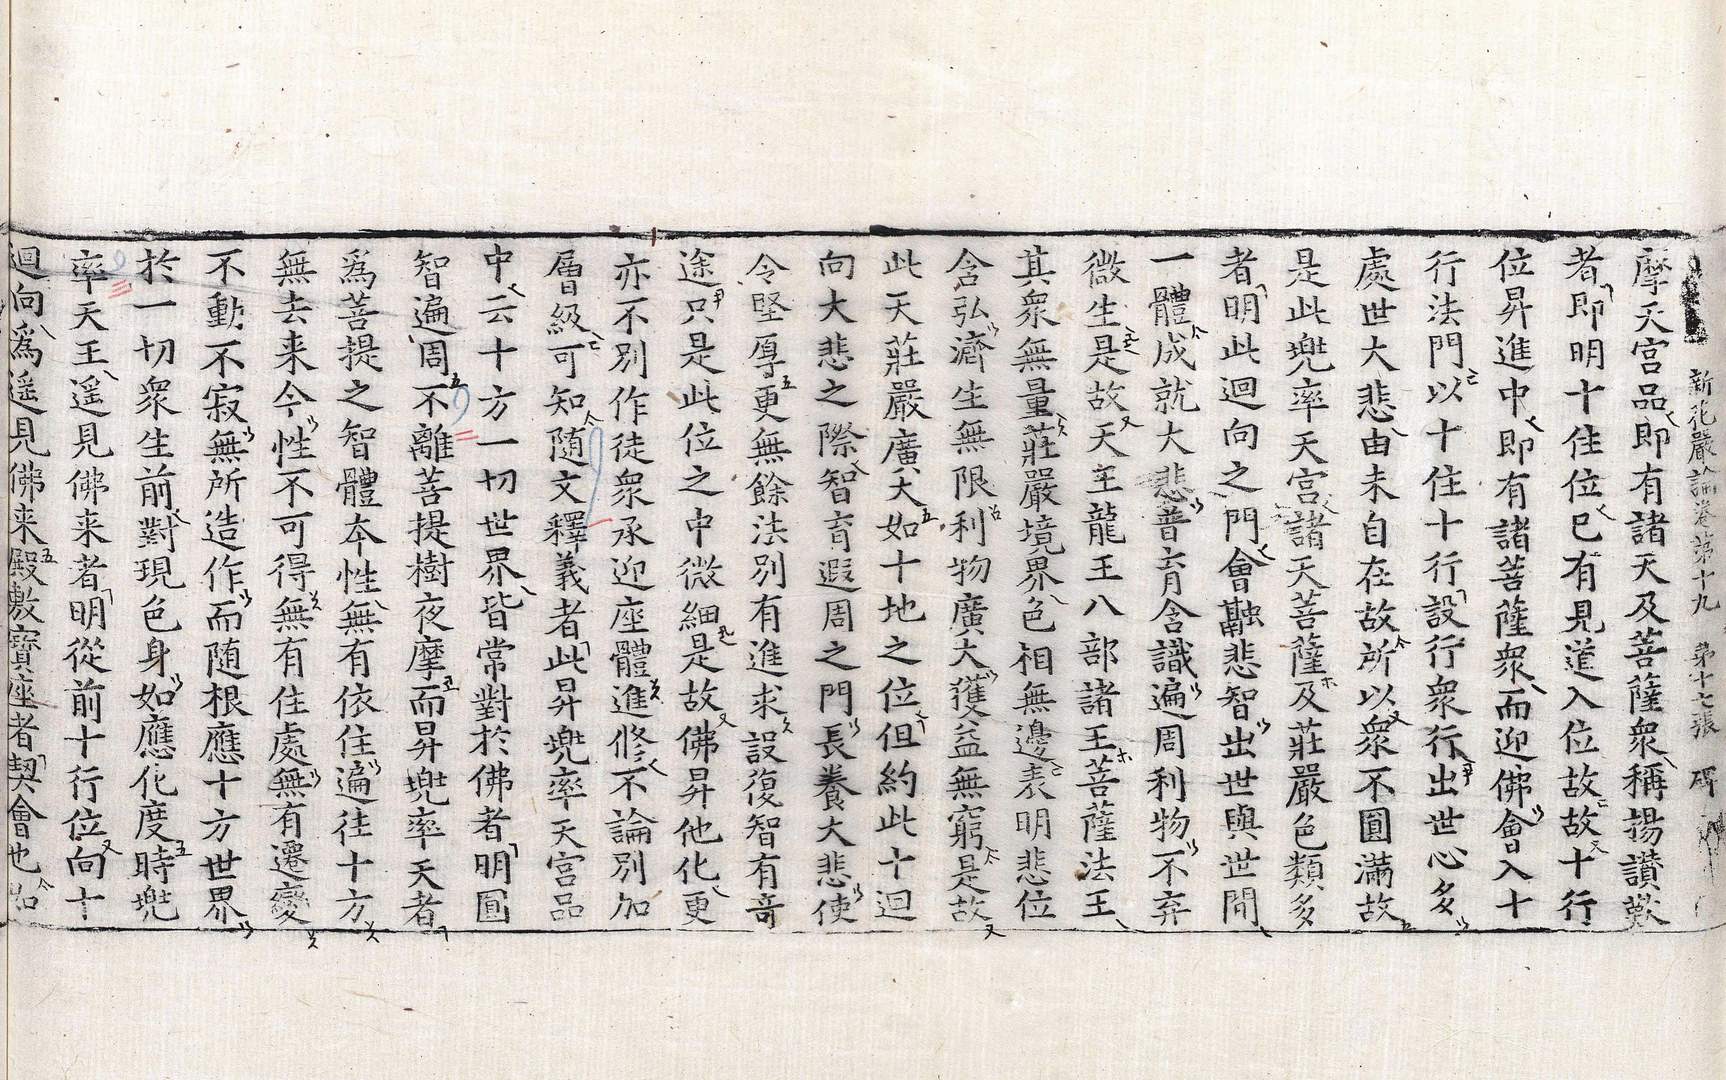 新花嚴論卷第十九 第十七張 碑
摩天宮品即有諸天及菩薩衆稱揚讃歎
者即明十住位已有見道入位故故十行
位昇進中即有諸菩薩衆而迎佛會入十
行法門以十住十行設行衆行出世心多
處世大悲由未自在故所以衆不圓滿故
是此兜率天宮諸天菩薩及莊嚴色類多
者明此迴向之門會融悲智出世與世間
一體成就大悲普育含識遍周利物不弃
微生是故天王龍王八部諸王菩薩法王
其衆無量莊嚴境界色相無邊表明悲位
含弘濟生無限利物廣大獲益無窮是故
此天莊嚴廣大如十地之位但約此十迴
向大悲之際智育遐周之門長養大悲使
令堅厚更無餘法別有進求設復智有竒
途只是此位之中微細是故佛昇他化更
亦不別作徒衆承迎座體進修不論別加
層級可知随文釋義者此昇兜率天宮品
中云十方一切世界皆常對於佛者明圓
智遍周不離菩提樹夜摩而昇兜率天者
爲菩提之智體本性無有依住遍往十方
無去来今性不可得無有住處無有遷變
不動不寂無所造作而随根應十方世界
於一切衆生前對現色身如應化度時兜
率天王遥見佛来者明從前十行位向十
迴向爲遥見佛来殿敷寳座者契會也